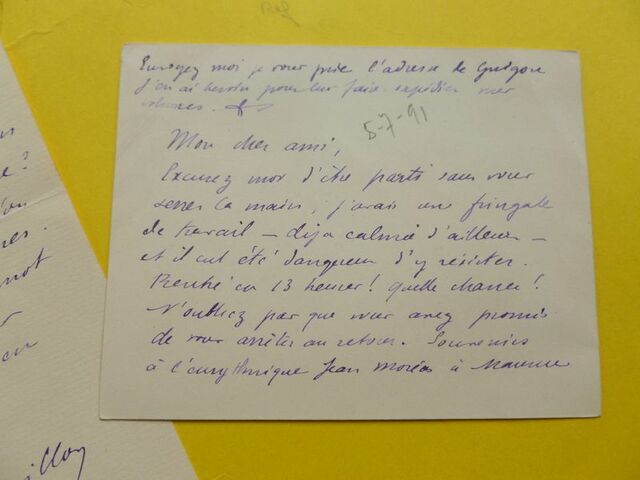 Ref
Envoyez moi je vous prie l'adresse de Guigou
j'en ai besoin pour leur faire expédier mes
volumes.
5-7-91
Mon cher ami,
Excusez moi d'être parti sans vous
serrer la main, j'avais une fringale
de travail — déjà calmée d'ailleurs —
et il eut été dangereux d'y résister.
Rentré en 13 heures! quelle chance!
N'oubliez pas que vous avez promis
de vous arrêter au retour. Souvenirs
à l'eurythmique Jean Moréas à